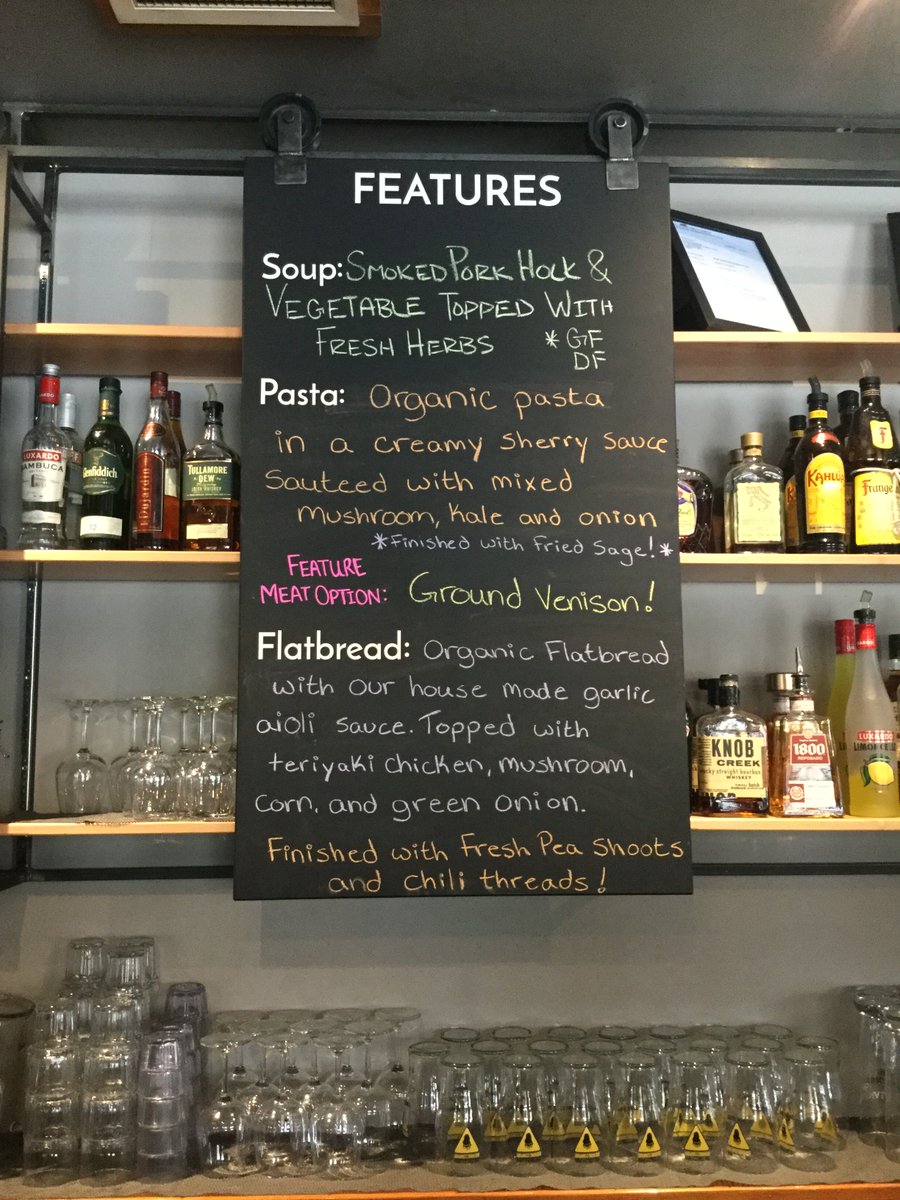 FEATURES
Soup: SMOKED PORK HOCK &
VEGETABLE TOPPED WITH
FRESH HERBS * GF
DF
Pasta: Organic pasta
in a creamy sherry sauce
Sauteed with mixed
mushroom, kale and onion
*Finished with Fried Sage!*
FEATURE
MEAT OPTION: Ground Venison!
Flatbread: Organic Flatbread
with our house made garlic
aioli sauce. Topped with
teriyaki chicken, mushroom,
corn, and green onion.
Finished with Fresh Pea Shoots
and chili threads!
LUXARDO
SAMBUCA
Glenfiddich
12
TULLAMORE
DEW
IRISH WHISKEY
KNOB
CREEK
WHISKEY
1800
REPOSADO
LUXARDO